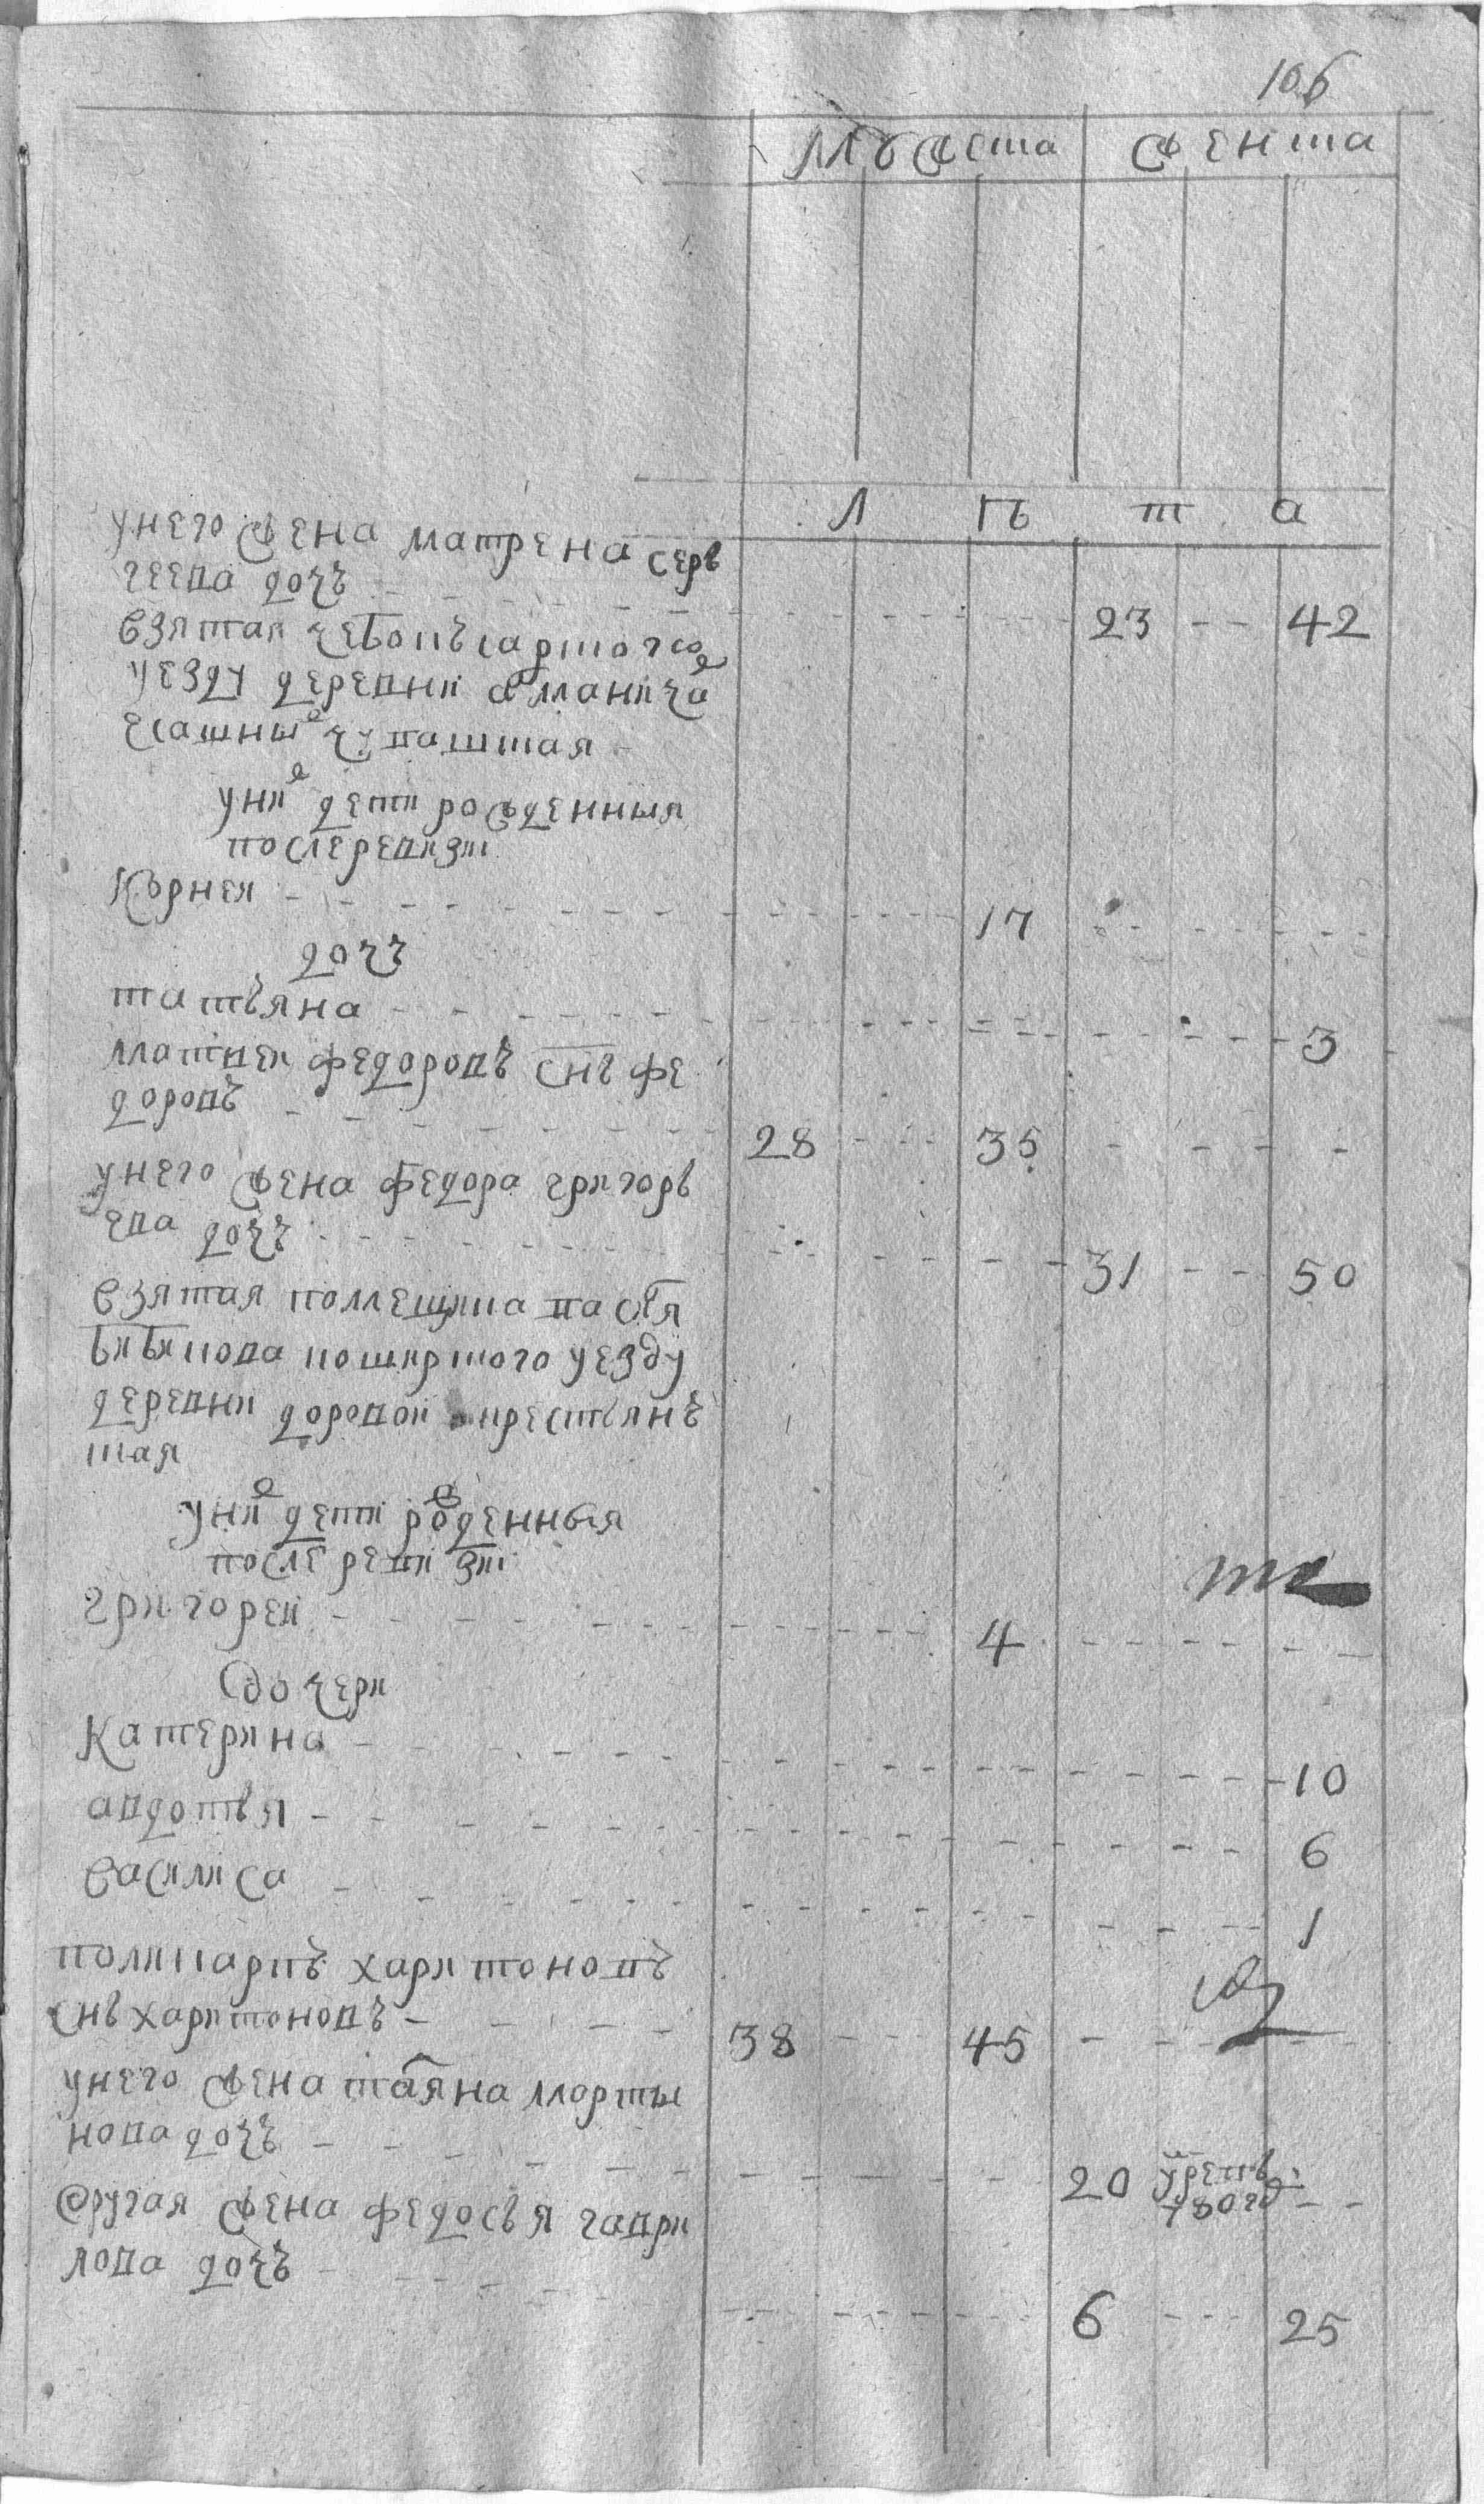 106
Мужеска Женска
Л ѣ т а
у него жена матрена серь
геева дочь - - - 23 - - 42
взятая чебоксарского
уезду деревни
ясашных чювашская
у них дети рожденныя
после ревизи
Корнея - - - 17 - - -
дочь
татьяна - - - 3
матвеи федоровъ снъ фе
доровъ - - - 28 - - - 35 - - -
у него жена федора григорь
ева дочь - - - 31 - - 50
взятая помещика васѝлья
кошкирского уезду
деревни
ская
у них дети рожденныя
после ревизи
григореи - - - 4 - - -
дочери
Катерина - - - 10
авдотья - - - 6
василиса - - - 1
поликарпъ харитоновъ
снъ харитоновъ - - - 38 - - - 45 - - -
у него жена татьяна марты
нова дочь - - - 20 умре въ
780 г - -
другая жена федосья гаври
лова дочь - - - 6 - - - 25